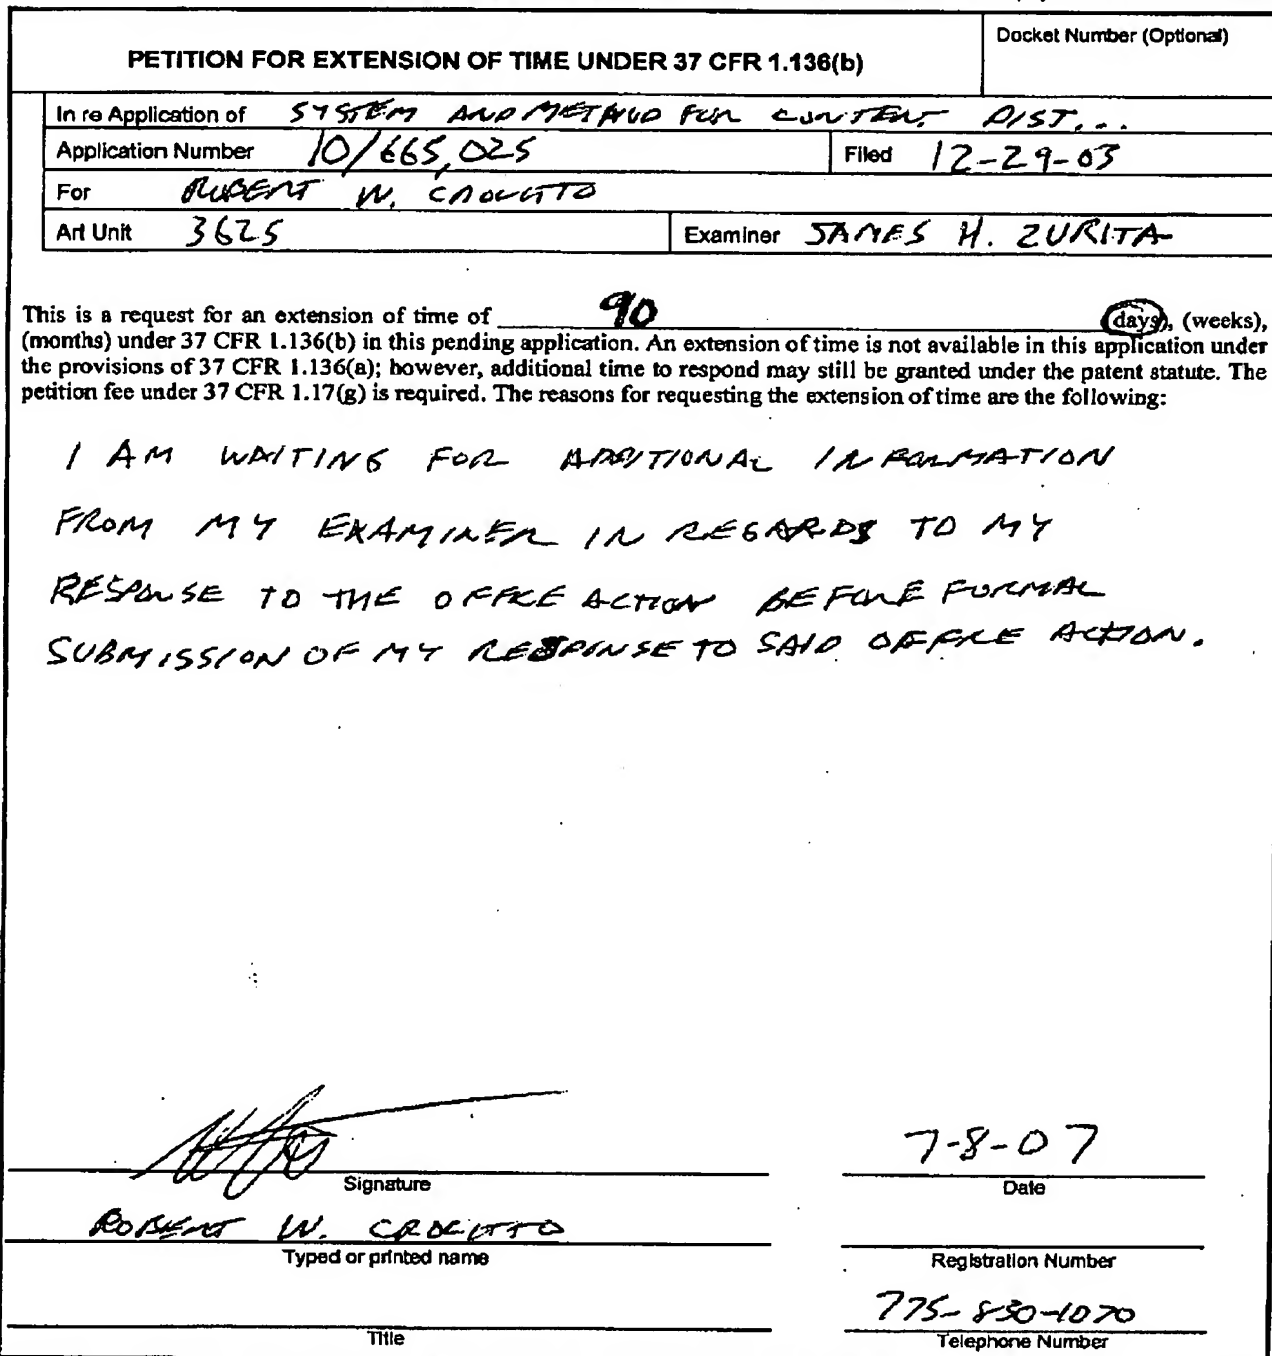 PETITION FOR EXTENSION OF TIME UNDER 37 CFR 1.136(b)
Docket Number (Optional)
In re Application of SYSTEM AND METHOD FOR CONTENT DIST...
Application Number 10/665,025 Filed 12-29-03
For ROBERT W.
Art Unit 3625 Examiner JAMES H. ZURITA
This is a request for an extension of time of 90 days, (weeks),
(months) under 37 CFR 1.136(b) in this pending application. An extension of time is not available in this application under
the provisions of 37 CFR 1.136(a); however, additional time to respond may still be granted under the patent statute. The
petition fee under 37 CFR 1.17(g) is required. The reasons for requesting the extension of time are the following:
I AM WAITING FOR ADDITIONAL INFORMATION
FROM MY EXAMINER IN REGARDS TO MY
RESPONSE TO THE OFFICE ACTION BEFORE FORMAL
SUBMISSION OF MY RESPONSE TO SAID OFFICE ACTION.
Signature
7-8-07
Date
ROBERT W.
Typed or printed name
Registration Number
775-830-1070
Title
Telephone Number